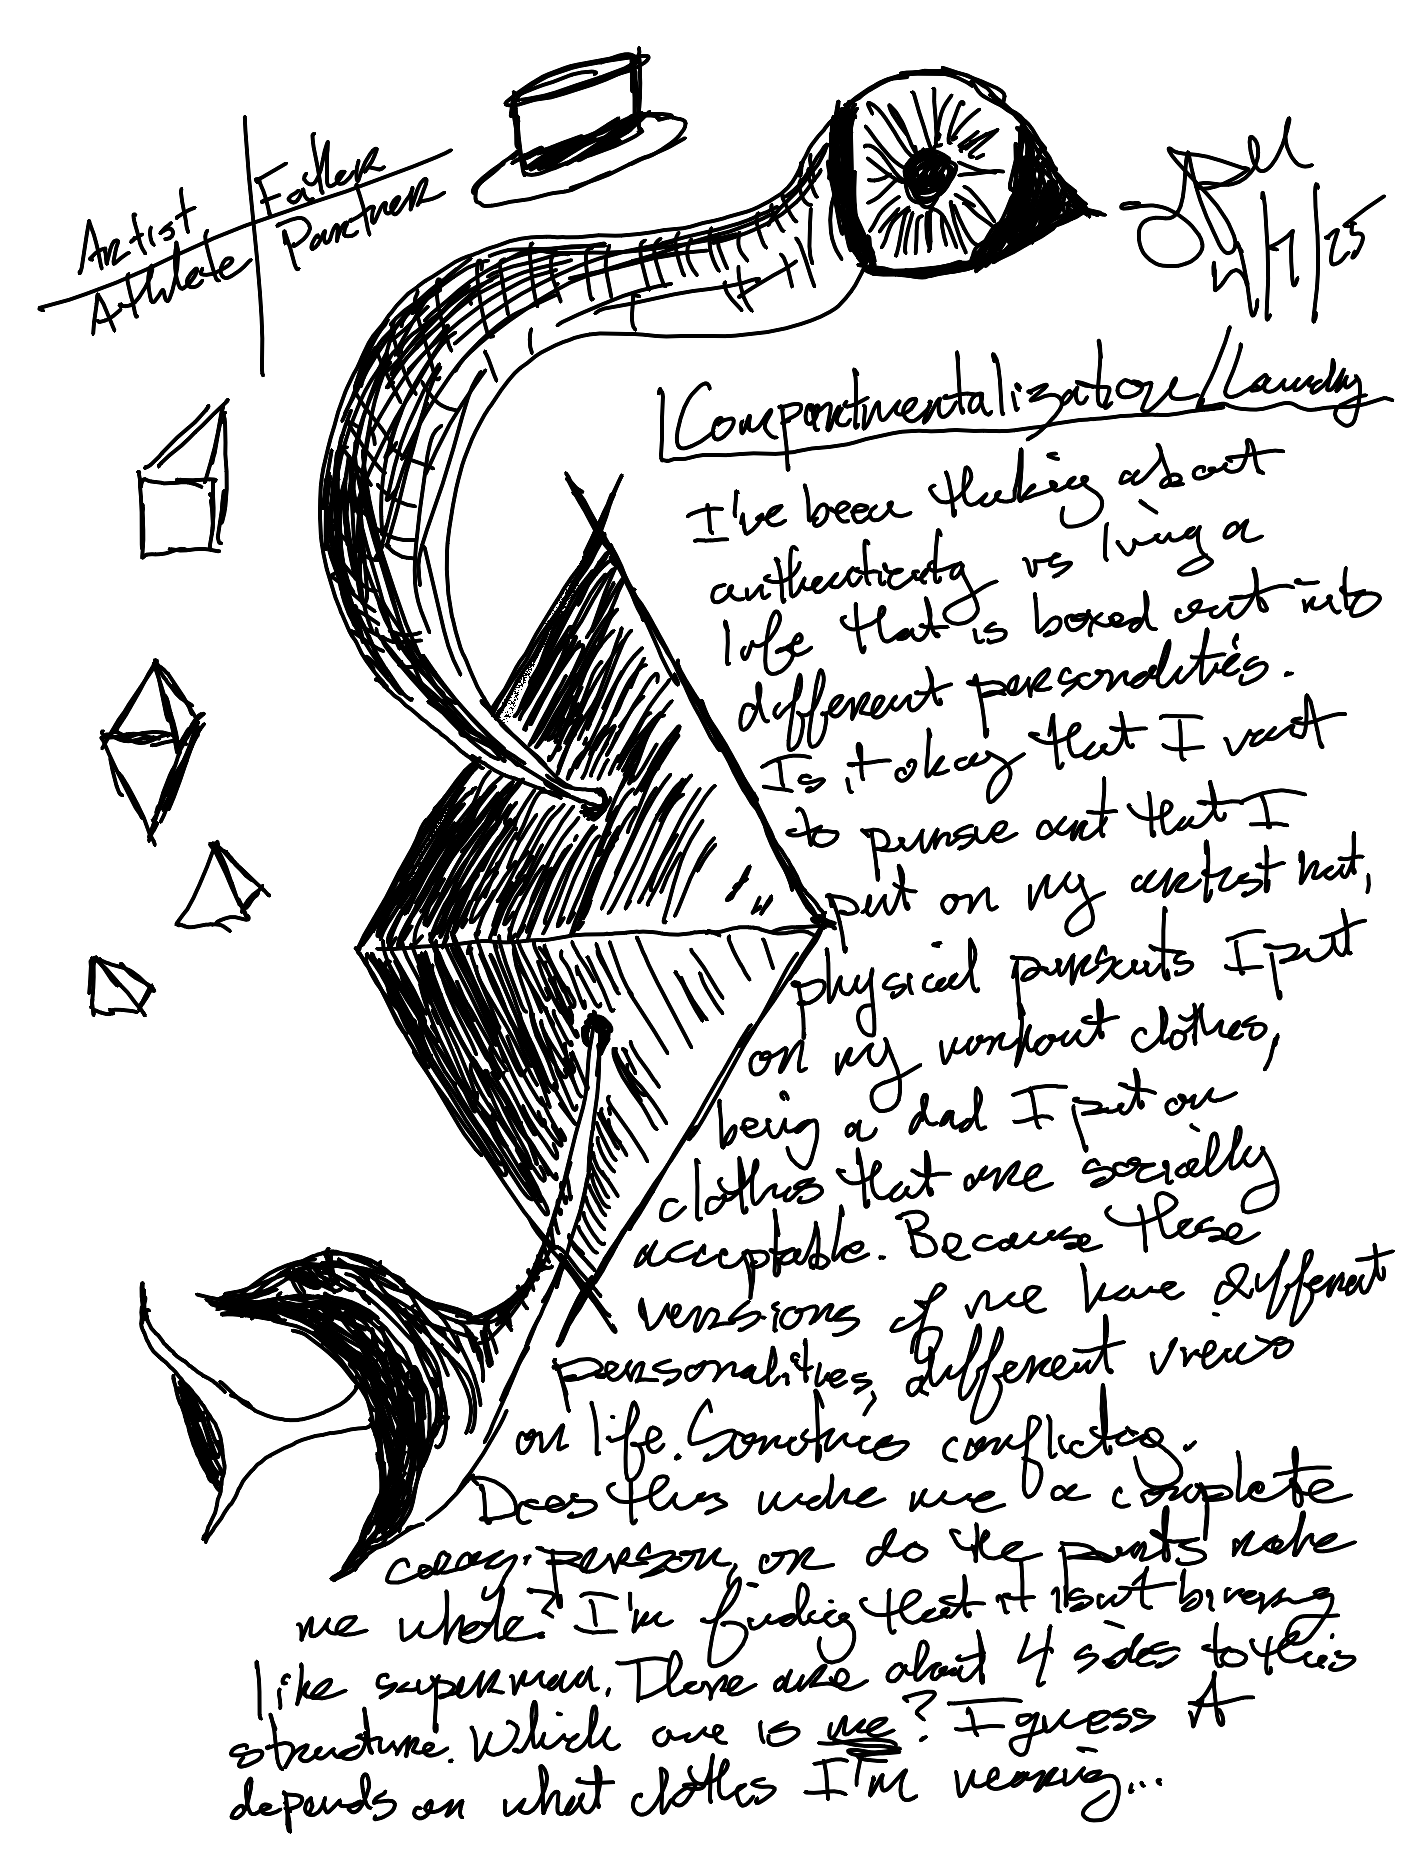 Artist
Father
Athlete
Partner
/7/25
Compartmentalization/Laundry
I've been thinking about
authenticity vs living a
life that is boxed out into
different personalities.
Is it okay that I want
to pursue art that I
put on my artist hat,
physical pursuits I put
on my workout clothes,
being a dad I put on
clothes that are socially
acceptable. Because these
versions of me have different
personalities, different views
on life. Sometimes conflicting.
Does this make me a complete
crazy person, or do the parts make
me whole? I'm finding that it isn't binary
like superman. There are about 4 sides to this
structure. Which one is me? I guess it
depends on what clothes I'm wearing...